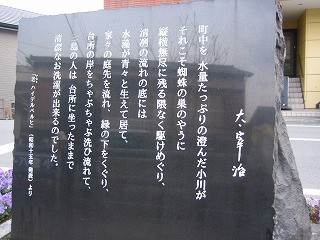 太宰治
町中を 水量たっぷりの澄んだ小川が
それこそ蜘蛛の巣のやうに
縦横無尽に残る隈なく駆けめぐり、
清冽の流れの底には
水藻が青々と生えて居て、
家々の庭先を流れ、縁の下をくぐり、
台所の岸をちゃぷちゃぷ洗ひ流れて、
三島の人は 台所に坐ったままで
清潔なお洗濯が出来るのでした。
「老ハイデルベルヒ」(昭和十五年 発表)より